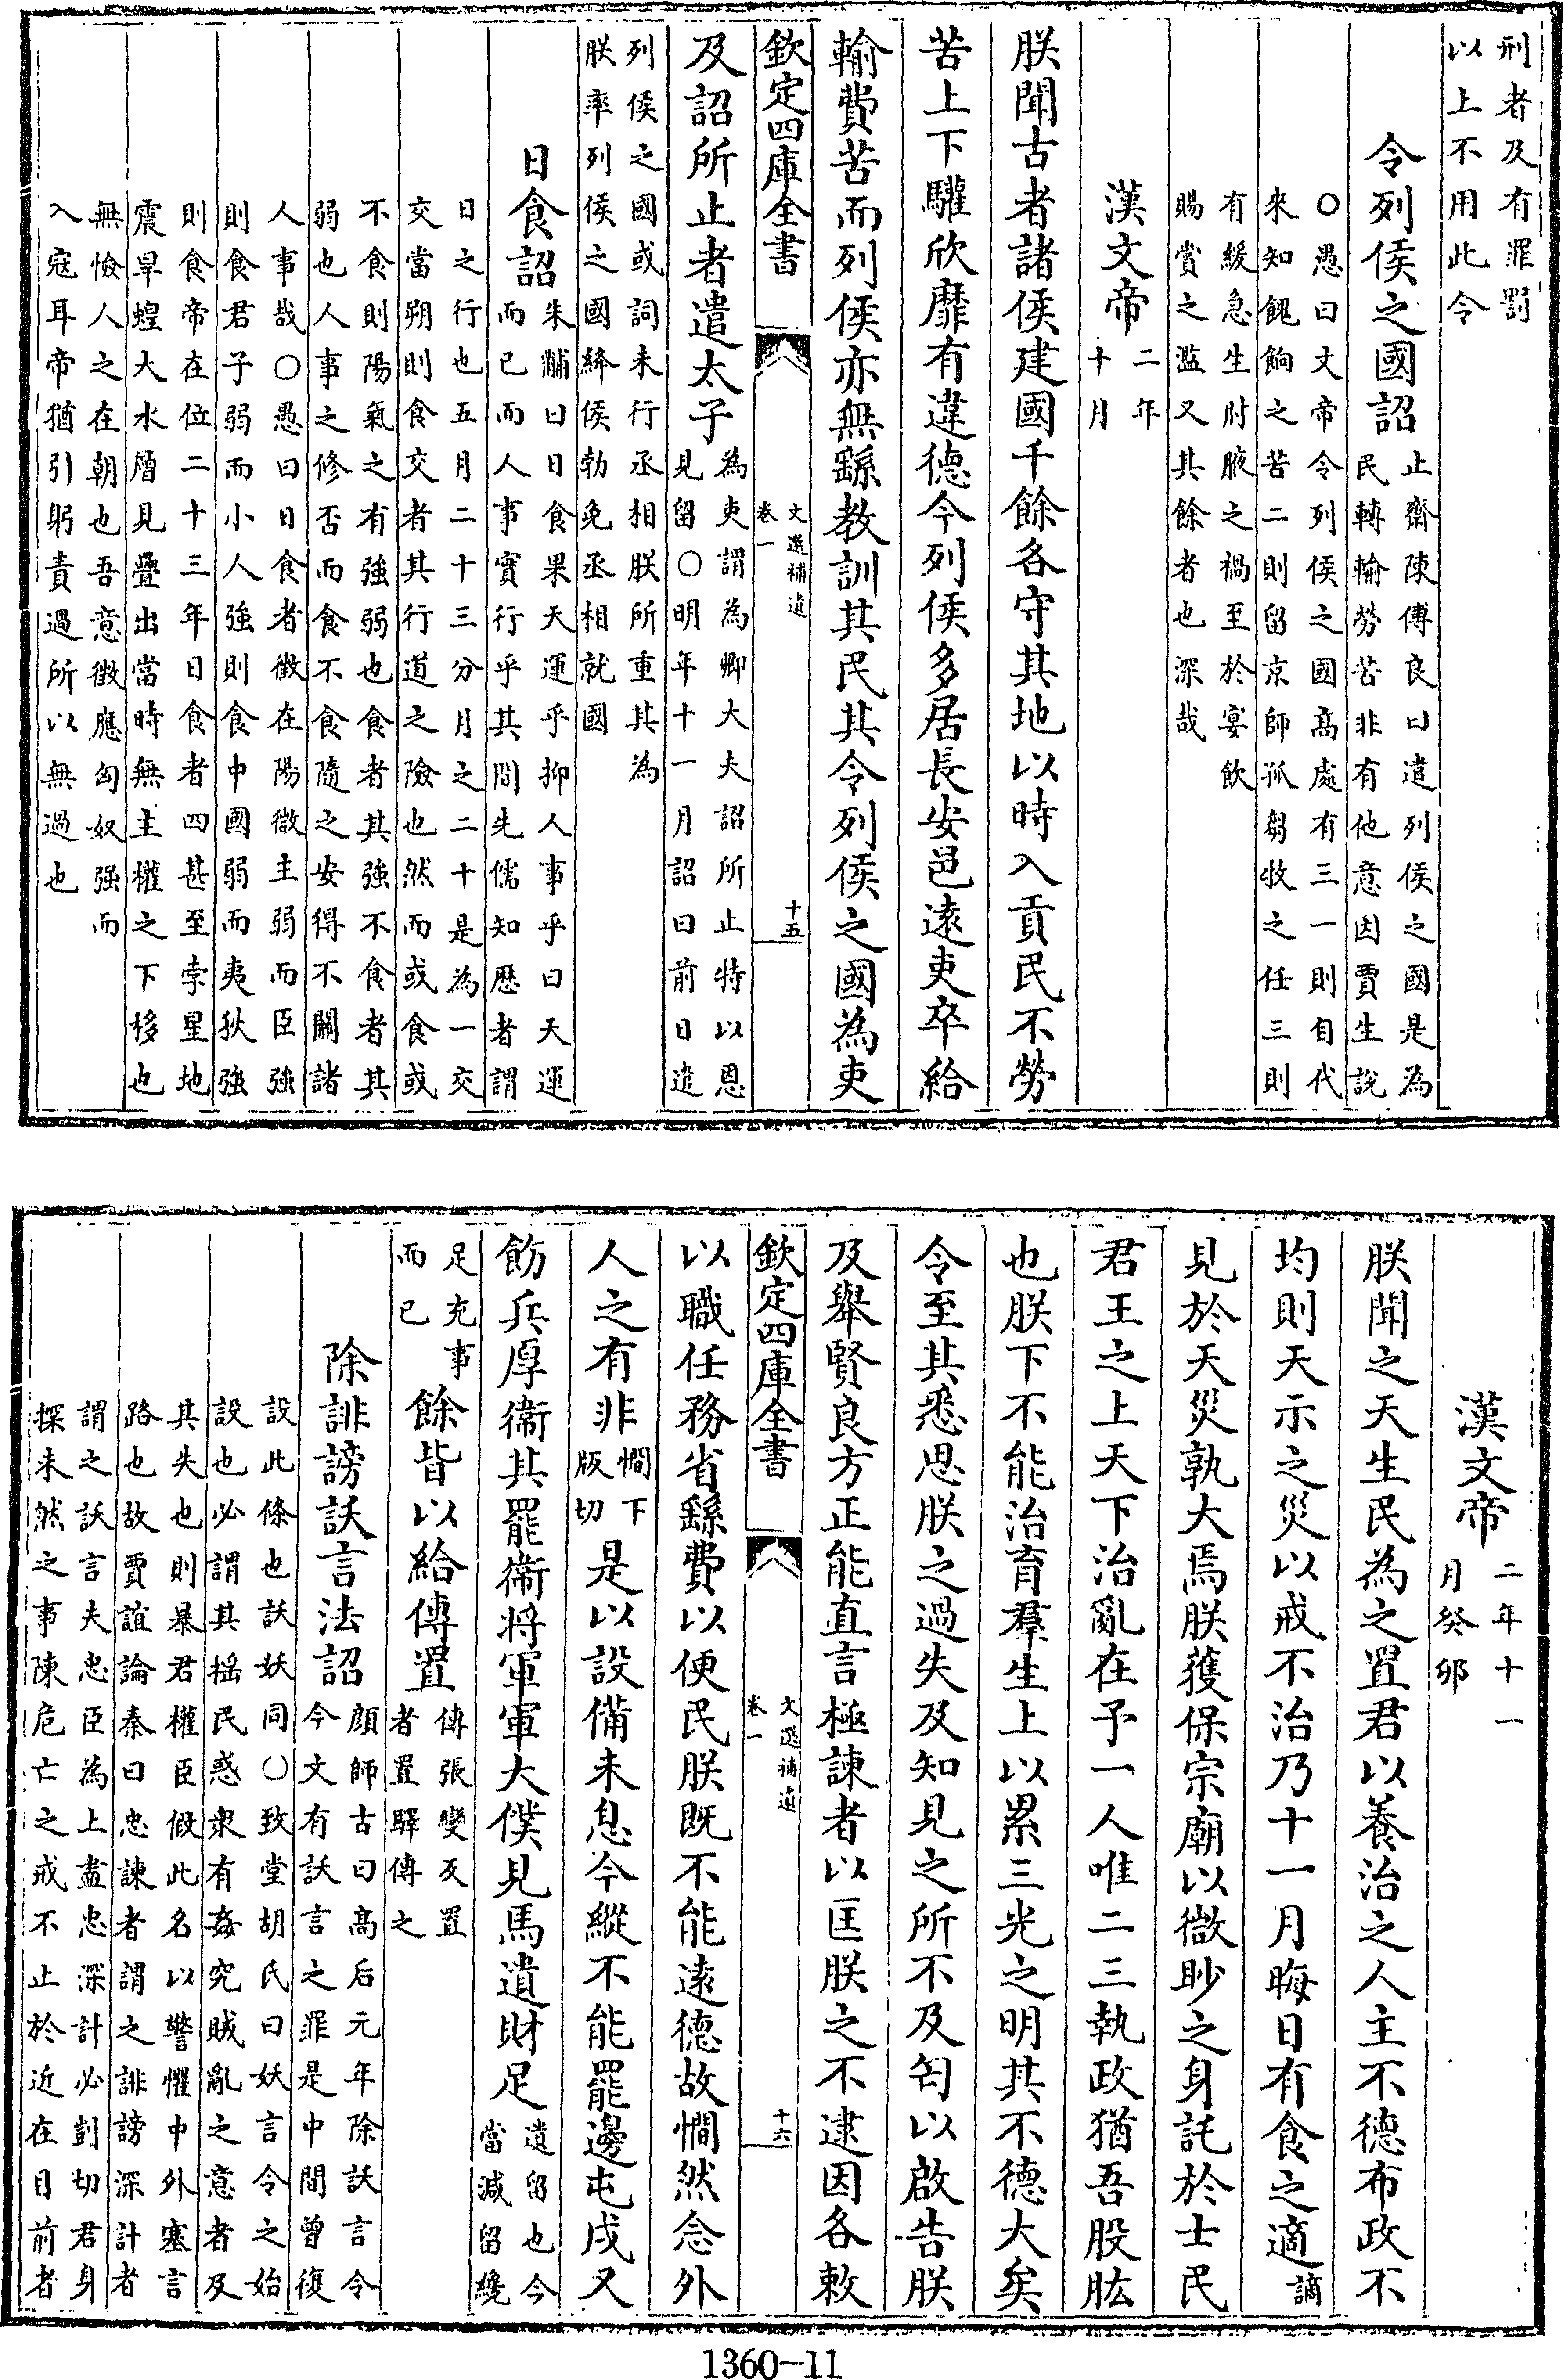 刑者及有罪罰
以上不用此令
令列侯之國詔
止齋陳傅良曰遣列侯之國是為
民轉輸勞苦非有他意因賈生說
○愚曰文帝令列侯之國髙處有三一則自代
來知餽餉之苦二則留京師孤芻牧之任三則
有緩急生肘腋之禍至於宴飲
賜賞之濫又其餘者也深哉
漢文帝
二年
十月
朕聞古者諸侯建國千餘各守其地以時入貢民不勞
苦上下驩欣靡有違德今列侯多居長安邑逺吏卒給
輸費苦而列侯亦無繇教訓其民其令列侯之國為吏
欽定四庫全書
文選補遺
卷一
十五
及詔所止者遣太子
為吏謂為卿大夫詔所止特以恩
見留○明年十一月詔曰前日遣
列侯之國或詞未行丞相朕所重其為
朕率列侯之國絳侯勃免丞相就國
日食詔
朱黼曰日食果天運乎抑人事乎曰天運
而已而人事實行乎其間先儒知歴者謂
日之行也五月二十三分月之二十是為一交
交當朔則食交者其行道之險也然而或食或
不食則陽氣之有強弱也食者其強不食者其
弱也人事之修否而食不食隨之安得不闗諸
人事哉○愚曰日食者徴在陽微主弱而臣強
則食君子弱而小人強則食中國弱而夷狄強
則食帝在位二十三年日食者四甚至孛星地
震旱蝗大水層見疊出當時無主權之下移也
無憸人之在朝也吾意徴應匈奴强而
入冦耳帝猶引躬責過所以無過也
漢文帝
二年十一
月癸卯
朕聞之天生民為之置君以養治之人主不德布政不
均則天示之災以戒不治乃十一月晦日有食之適
謫
見於天災孰大焉朕獲保宗廟以微眇之身託於士民
君王之上天下治亂在予一人唯二三執政猶吾股肱
也朕下不能治育羣生上以累三光之明其不德大矣
令至其悉思朕之過失及知見之所不及匄以啟告朕
及舉賢良方正能直言極諫者以匡朕之不逮因各敕
欽定四庫全書
文選補遺
卷一
十六
以職任務省繇費以便民朕既不能逺德故憪然念外
人之有非
憪下
版切
是以設備未息今縱不能罷邊屯戍又
飭兵厚衞其罷衞將軍軍大僕見馬遺財足
遺留也今
當減留纔
足充事
而已
餘皆以給傳置
傳張孌反置
者置驛傳之
除誹謗訞言法詔
顔師古曰髙后元年除訞言令
今文有訞言之罪是中間曽復
設此條也訞妖同○致堂胡氏曰妖言令之始
設也必謂其揺民惑衆有姦宄賊亂之意者及
其失也則暴君權臣假此名以警懼中外塞言
路也故賈誼論秦曰忠諫者謂之誹謗深計者
謂之訞言夫忠臣為上盡忠深計必剴切君身
探未然之事陳危亡之戒不止於近在目前者
1360—11